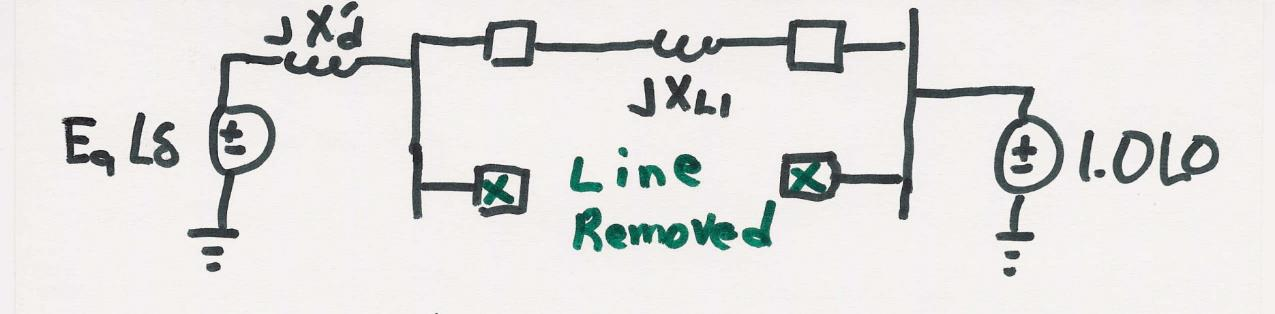 jX'd
jXL1
Eq∠δ
±
X
Line
Removed
X
±
1.0∠0